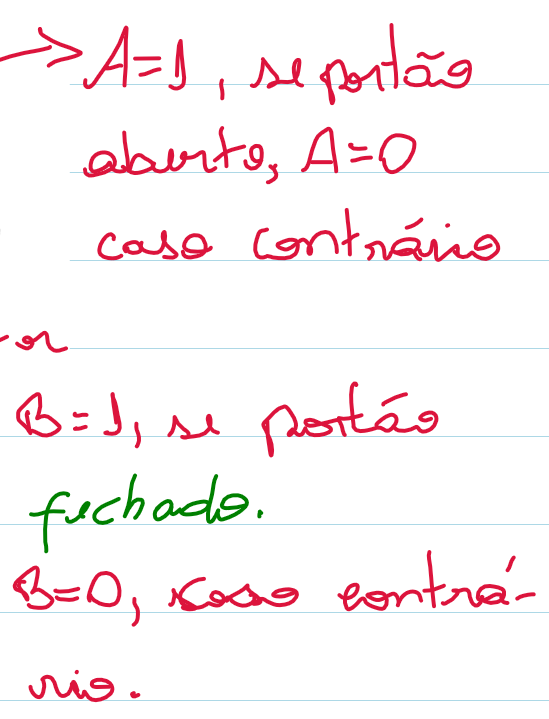 A=1, se portão
aberto, A=0
caso contrário
or
B=1, se portão
fechado.
B=0, caso contrá-
rio.